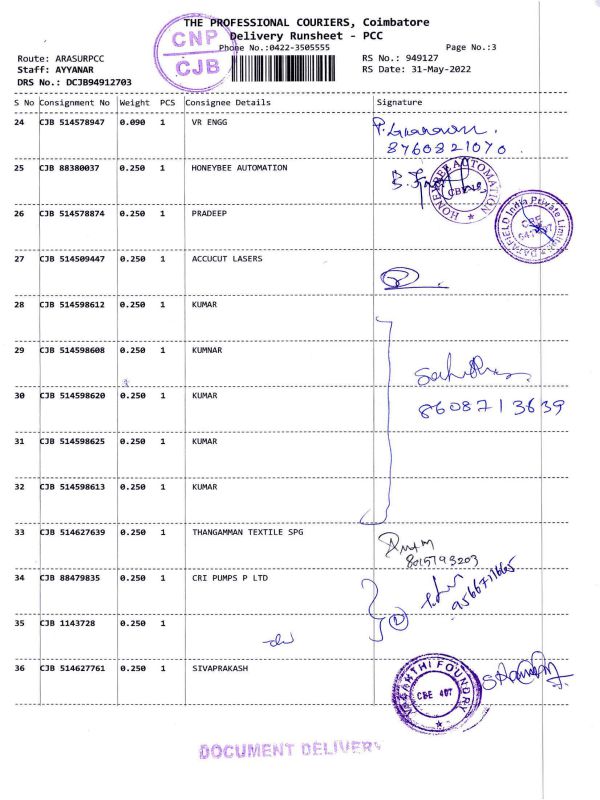 THE PROFESSIONAL COURIERS, Coimbatore
Delivery Runsheet - PCC
Phone No.:0422-3505555
Page No.:3
CNP
CJB
Route: ARASURPCC
RS No.: 949127
Staff: AYYANAR
RS Date: 31-May-2022
DRS No.: DCJB94912703
S No Consignment No Weight PCS Consignee Details Signature
24 CJB 514578947 0.090 1 VR ENGG
8760821070
25 CJB 88380037 0.250 1 HONEYBEE AUTOMATION
HONEYBEE AUTOMATION
26 CJB 514578874 0.250 1 PRADEEP
DATAFIELD India Private Limited
CBE
27 CJB 514509447 0.250 1 ACCUCUT LASERS
28 CJB 514598612 0.250 1 KUMAR
29 CJB 514598608 0.250 1 KUMNAR
30 CJB 514598620 0.250 1 KUMAR
8608713639
31 CJB 514598625 0.250 1 KUMAR
32 CJB 514598613 0.250 1 KUMAR
33 CJB 514627639 0.250 1 THANGAMMAN TEXTILE SPG
8015793203
34 CJB 88479835 0.250 1 CRI PUMPS P LTD
2
35 CJB 1143728 0.250 1
36 CJB 514627761 0.250 1 SIVAPRAKASH
FOUNDRY
CBE 407
DOCUMENT DELIVERY